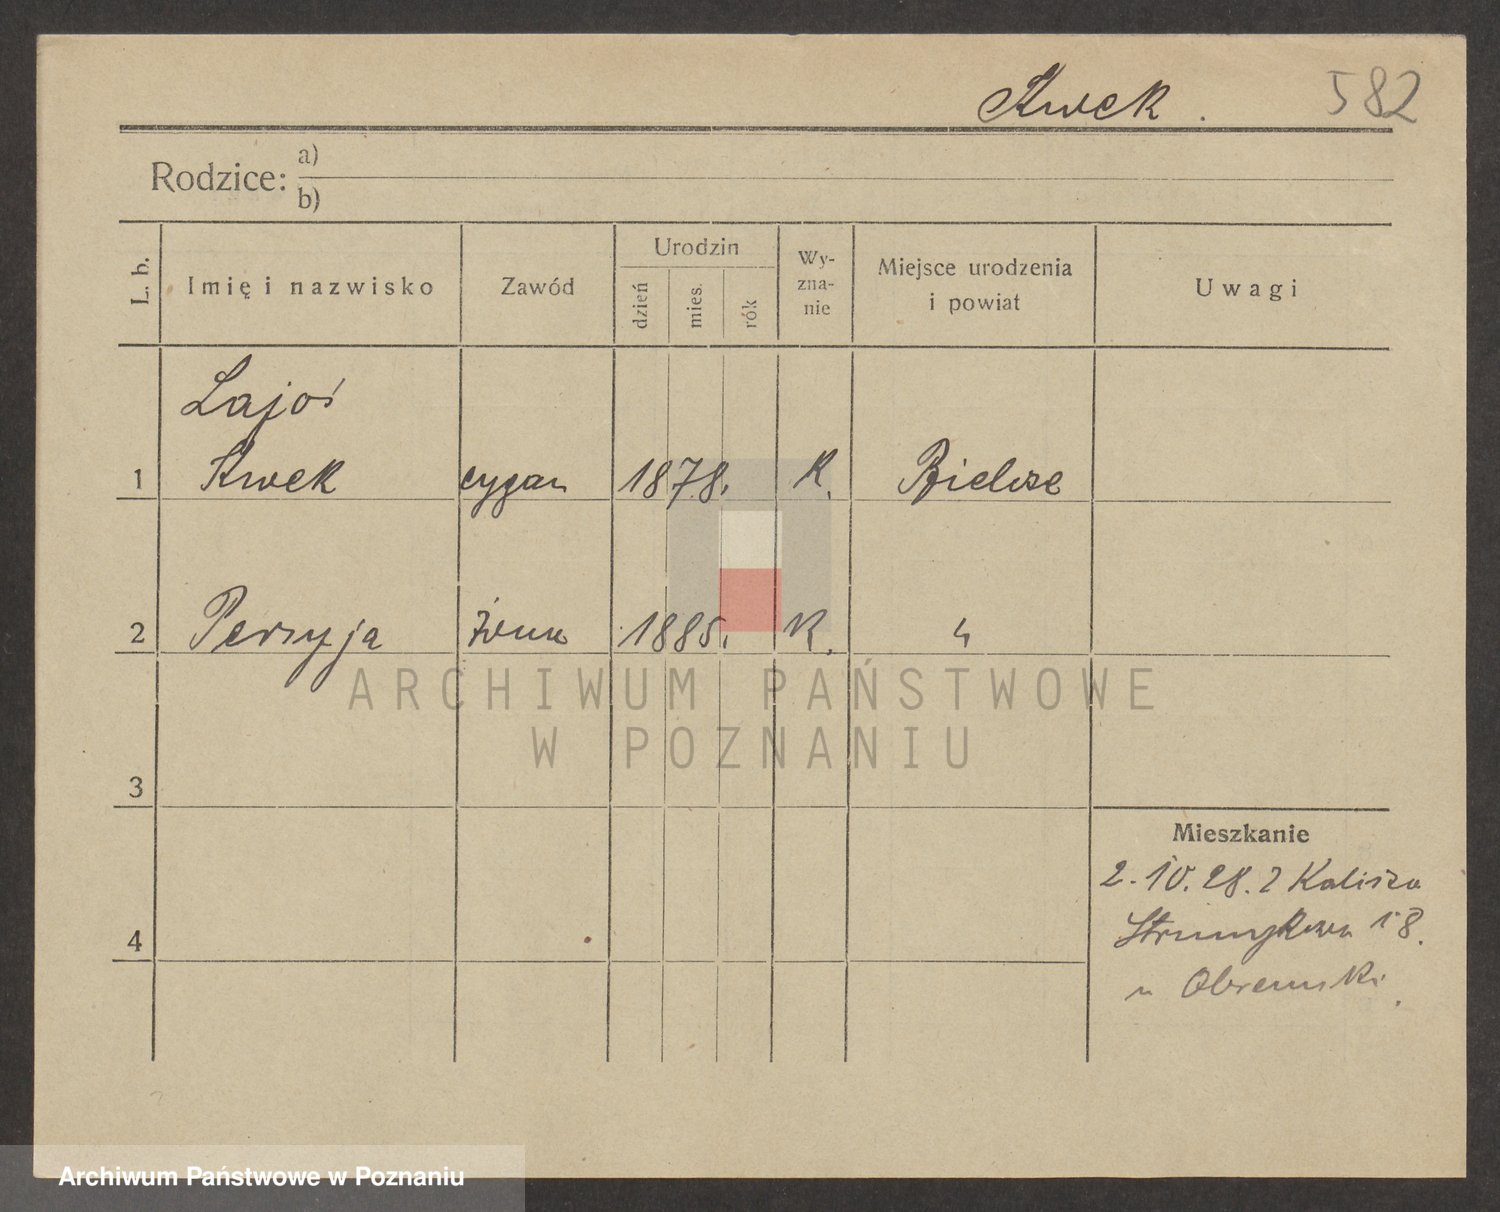 Kwek.
582
Rodzice: a)
b)
L. b.
Imię i nazwisko
Zawód
Urodzin
dzień
mies.
rok
Wy-
zna-
nie
Miejsce urodzenia
i powiat
Uwagi
Lajoś
1 Kwek cygan 1878. K. Bielsze
2 Perzyja żona 1885. K. "
3
4
Mieszkanie
2.10.28. z Kalisza
Strumykowa 18.
u
ARCHIWUM PAŃSTWOWE
W POZNANIU
Archiwum Państwowe w Poznaniu